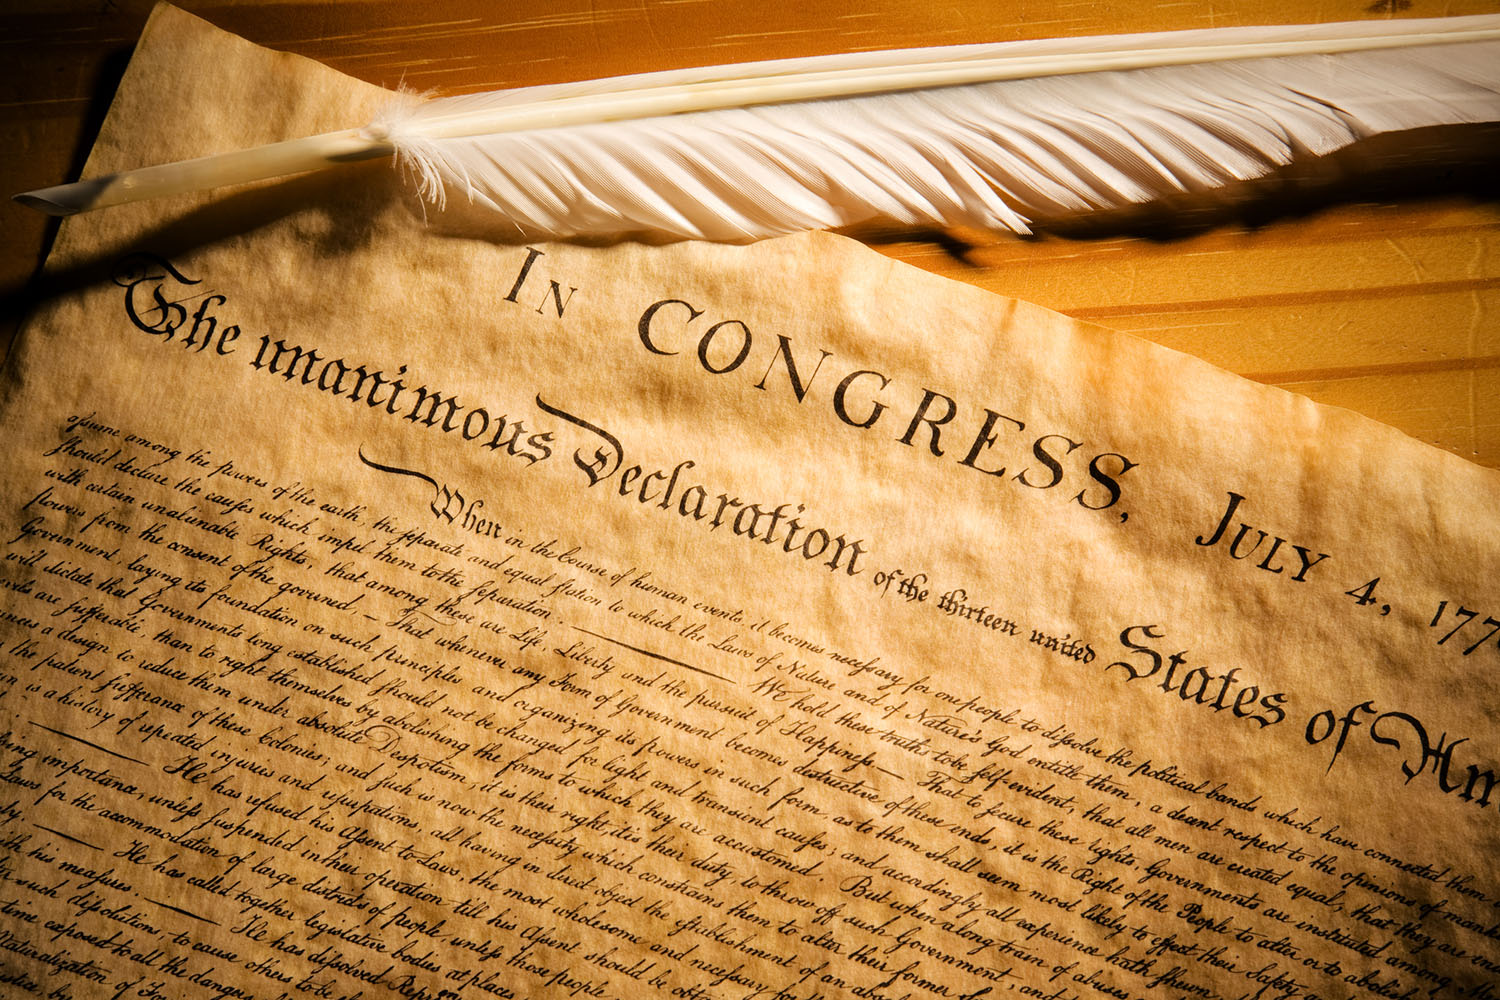 In CONGRESS, July 4, 177
The unanimous Declaration of the thirteen united States of Am
When in the Course of human events, it becomes necessary for one people to dissolve the political bands which have connected them
assume among the powers of the earth, the separate and equal station to which the Laws of Nature and of Nature's God entitle them, a decent respect to the opinions of mank
should declare the causes which impel them to the separation. —— We hold these truths to be self-evident, that all men are created equal, that they are end
with certain unalienable Rights, that among these are Life, Liberty and the pursuit of Happiness.— That to secure these rights, Governments are instituted among
powers from the consent of the governed, — That whenever any Form of Government becomes destructive of these ends, it is the Right of the People to alter or to abolish
Government, laying its foundation on such principles and organizing its powers in such form, as to them shall seem most likely to effect their Safety
will dictate that Governments long established should not be changed for light and transient causes; and accordingly all experience hath shewn
are sufferable, than to right themselves by abolishing the forms to which they are accustomed. But when a long train of abuses
a design to reduce them under absolute Despotism, it is their right, it is their duty, to throw off such Government, and
the patient sufferance of these Colonies; and such is now the necessity which constrains them to alter their former
is a history of repeated injuries and usurpations, all having in direct object the establishment of an
—— He has refused his Assent to Laws, the most wholesome and necessary for
importance, unless suspended in their operation till his Assent should be
Laws for the accommodation of large districts of people, unless those people
—— He has called together legislative bodies at places
his measures. —— He has dissolved Repr
such dissolutions, to cause others to be
time exposed to all the dangers
Naturalization of